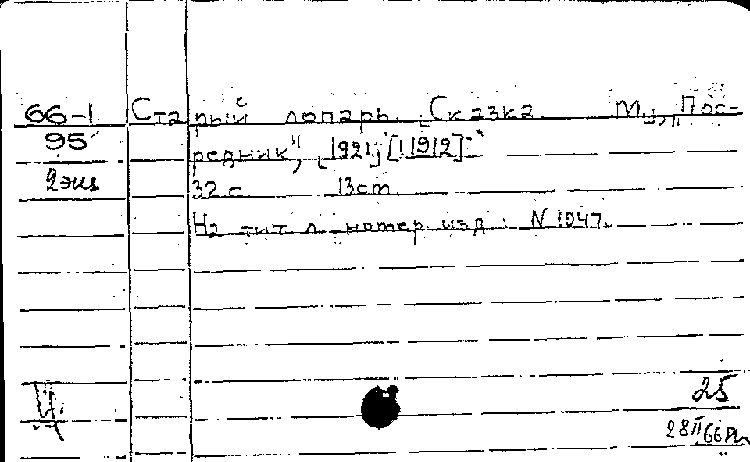 66-1 Старый лопарь. Сказка М., "Пос-
95 редник", [1921; [1912]
2экз 32 с. 13 см.
На тит. л. номер изд.: N 1047.
25
28 II 66